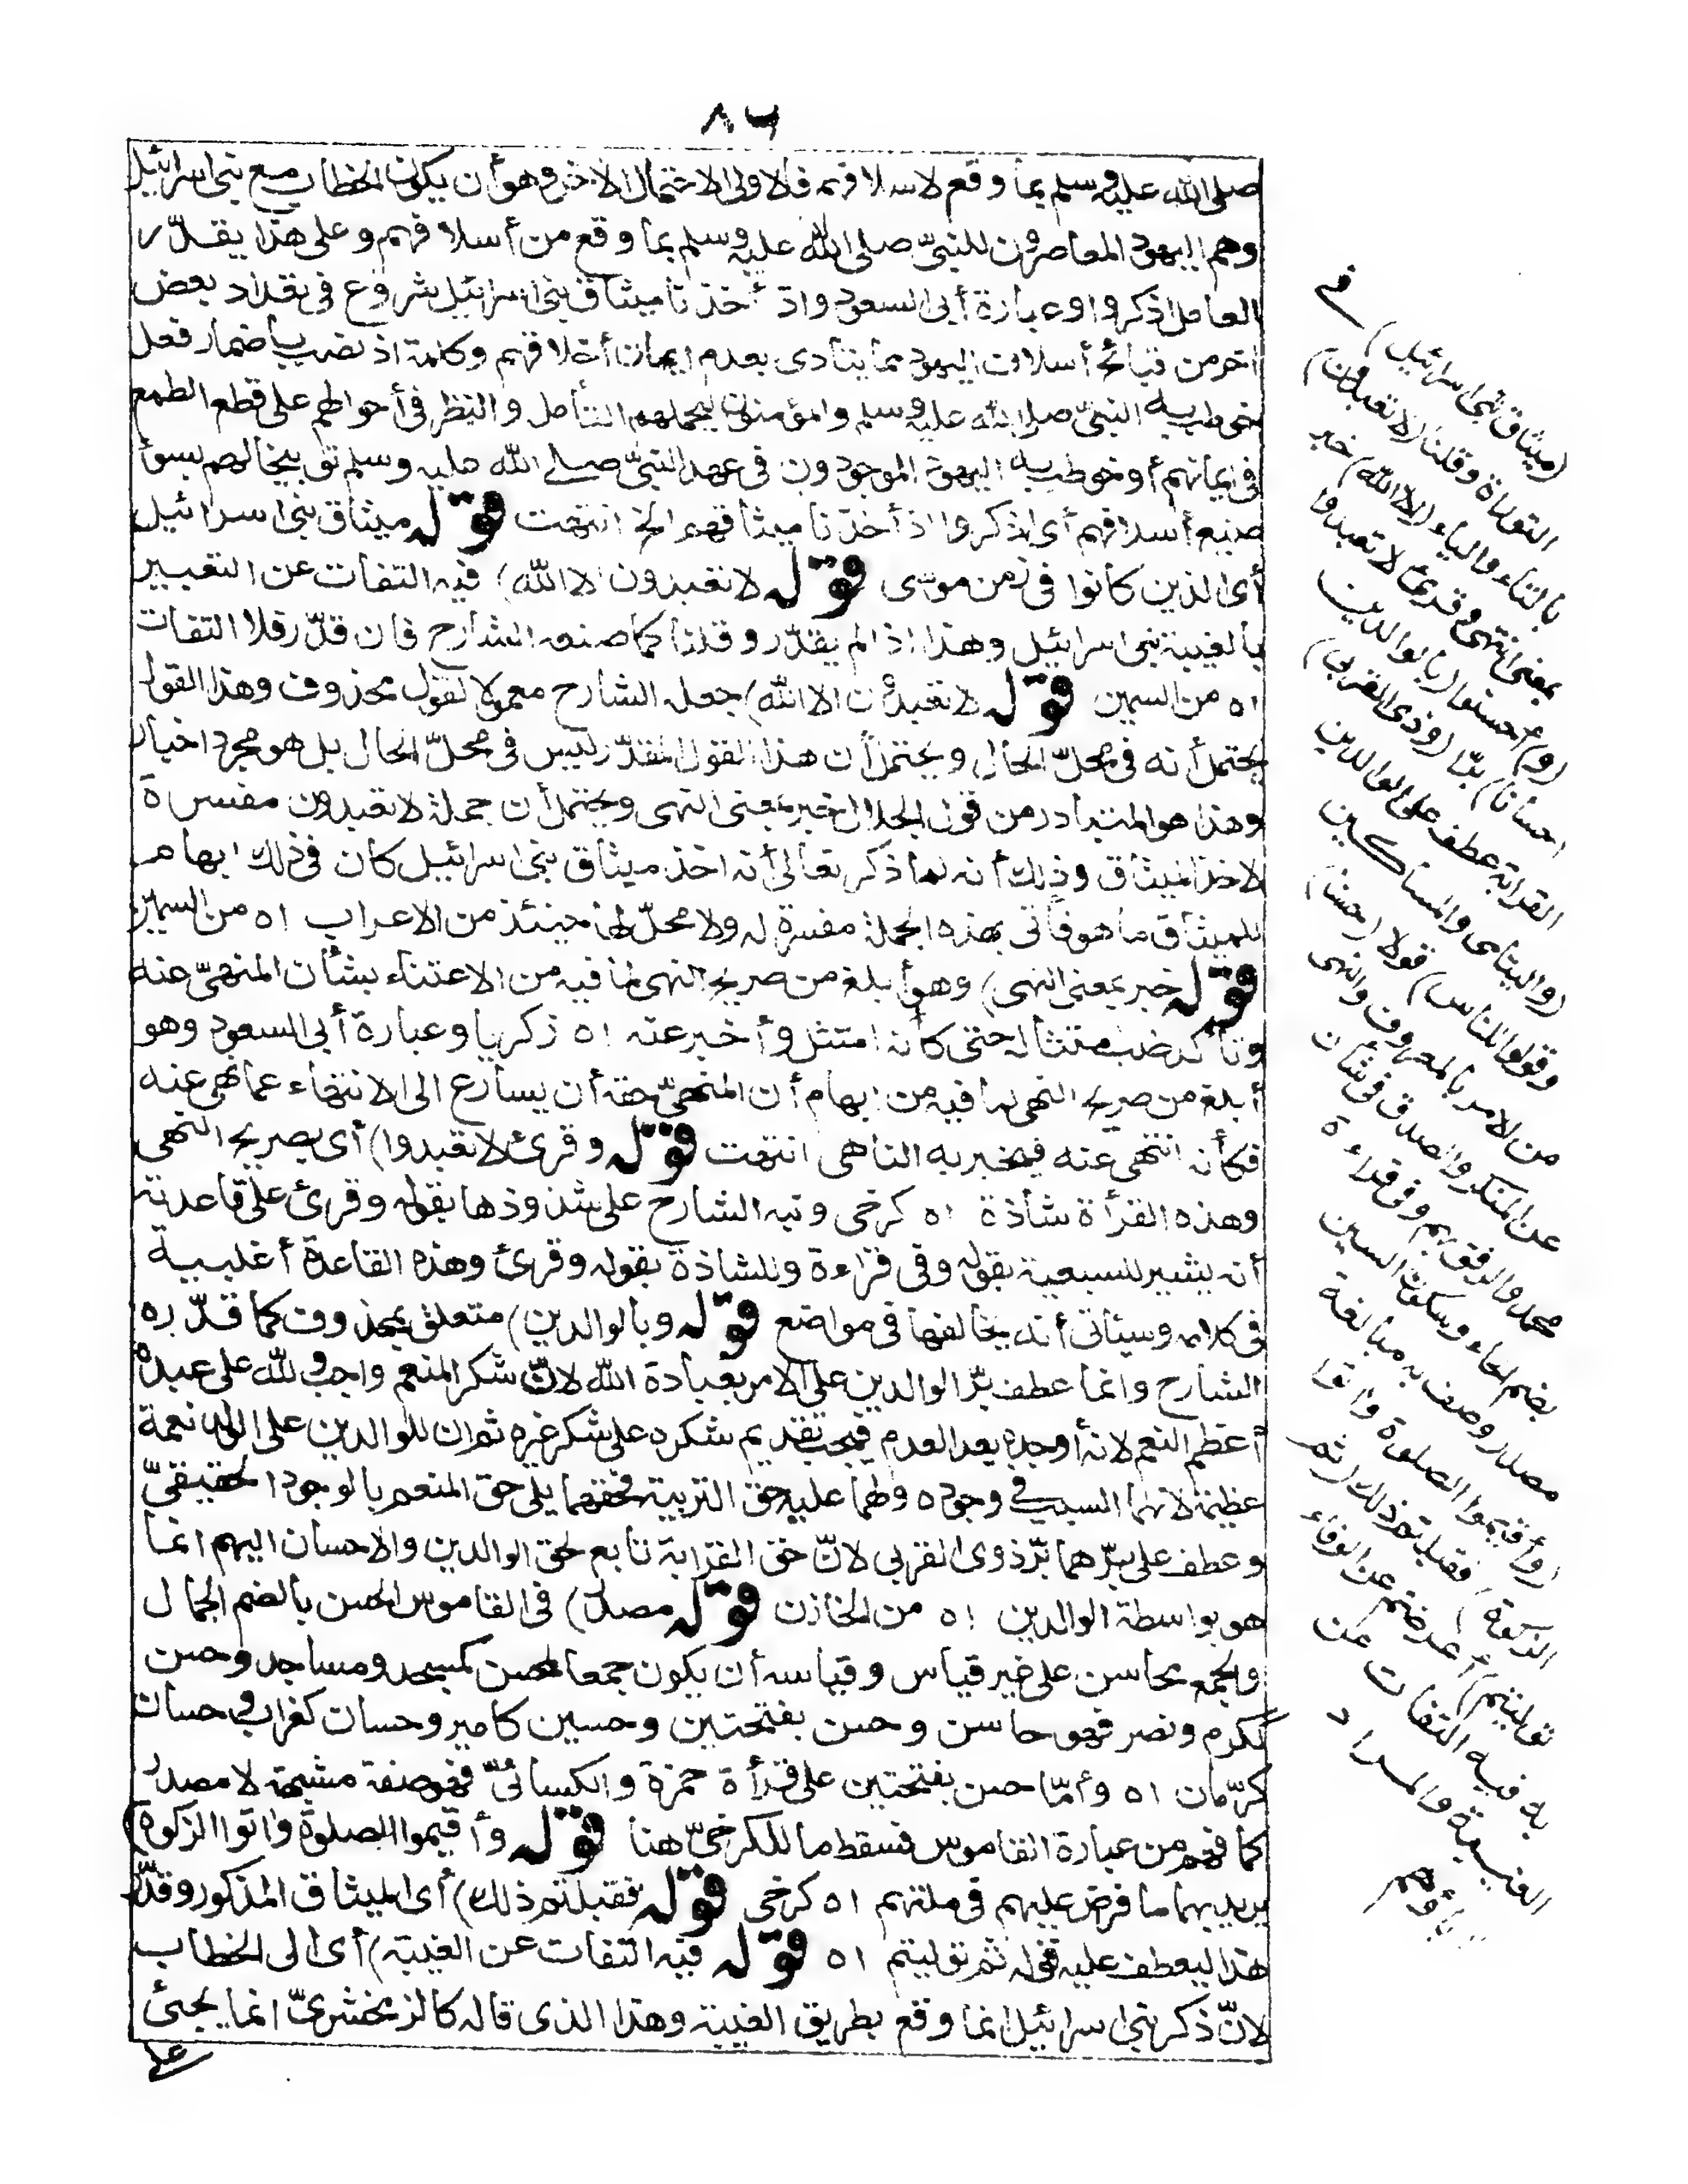 ٨٦
صلى الله عليه وسلم بما وقع لاسلافهم فالاولى الاحتمال الاخر وهو أن يكون الخطاب مع بنى اسرائيل
وهم اليهود المعاصرون للنبىّ صلى الله عليه وسلم بما وقع من أسلافهم وعلى هذا يقدّر
العامل اذكروا وعبارة أبى السعود واذ أخذنا ميثاق بنى اسرائيل شروع فى تعداد بعض
اخر من قبائح أسلاف اليهود مما ينادى بعدم ايمان أخلافهم وكلمة اذ نصب باضمار فعل
خوطب به النبىّ صلى الله عليه وسلم والمؤمنون ليحملهم التأمل والنظر فى أحوالهم على قطع الطمع
فى ايمانهم أو خوطب به اليهود الموجودون فى عهد النبىّ صلى الله عليه وسلم توبيخا لهم بسوأ
صنيع أسلافهم أى اذكروا اذ أخذنا ميثاقهم الخ انتهت قوله ميثاق بنى اسرائيل
أى الذين كانوا فى زمن موسى قوله لا تعبدون الا الله) فيه التفات عن التعبير
بالغيبة بنى اسرائيل وهذا اذا لم يقدّر وقلنا كما صنعه الشارح فان قدّر فلا التفات
اه من السمين قوله لا تعبدون الا الله) جعله الشارح معمولا لقول محذوف وهذا القول
يحتمل أنه فى محلّ الحال ويحتمل أن هذا القول المقدّر ليس فى محلّ الحال بل هو مجرد اخبار
وهذا هو المتبادر من قول الجلال خبر بمعنى النهى ويحتمل أن جملة لا تعبدون مفسرة
لاخذ الميثاق وذلك أنه لما ذكر تعالى أنه اخذ ميثاق بنى اسرائيل كان فى ذلك ابهام
للميثاق ما هو فأتى بهذه الجملة مفسرة له ولا محلّ لها حينئذ من الاعراب اه من السمين
قوله خبر بمعنى النهى) وهو أبلغ من صريح النهى لما فيه من الاعتناء بشأن المنهىّ عنه
وتأكد طلب امتثاله حتى كأنه امتثل وأخبر عنه اه زكريا وعبارة أبى السعود وهو
أبلغ من صريح النهى لما فيه من ابهام أن المنهىّ حقه أن يسارع الى الانتهاء عما نهى عنه
فكأنه انتهى عنه فيخبر به الناهى انتهت قوله وقرئ لا تعبدوا) أى بصريح النهى
وهذه القرأة شاذة اه كرخى ونبه الشارح على شذوذها بقوله وقرئ على قاعدته
أنه يشير للسبعية بقوله وفى قراءة وللشاذة بقوله وقرئ وهذه القاعدة أغلبية
فى كلامه وسيأتى أنه يخالفها فى مواضع قوله وبالوالدين) متعلق بمحذوف كما قدّره
الشارح وانما عطف برّ الوالدين على الامر بعبادة الله لانّ شكر المنعم واجب ولله على عبده
أعظم النعم لانه أوجده بعد العدم فيجب تقديم شكره على شكر غيره ثم ان للوالدين على الولد نعمة
عظيمة لانهما السبب فى وجوده ولهما عليه حق التربية فحقهما يلى حق المنعم بالوجود الحقيقىّ
وعطف على برّهما برّ ذوى القربى لانّ حق القرابة تابع لحق الوالدين والاحسان اليهم انما
هو بواسطة الوالدين اه من الخازن قوله مصدر) فى القاموس الحسن بالضم الجمال
والجمع محاسن على غير قياس وقياسه أن يكون جمعا لحسن كمسجد ومساجد وحسن
ككرم ونصر فهو حاسن وحسن بفتحتين وحسين كامير وحسان كغراب وحسان
كرّمان اه وأمّا حسن بفتحتين على قرأة حمزة والكسائىّ فهو صفة مشبهة لا مصدر
كما فهم من عبارة القاموس فسقط ما للكرخىّ هنا قوله وأقيموا الصلوة واتوا الزكوة)
يريد بهما ما فرض عليهم فى ملتهم اه كرخى قوله فقبلتم ذلك) أى الميثاق المذكور وقدّر
هذا ليعطف عليه قوله ثم توليتم اه قوله فيه التفات عن الغيبة) أى الى الخطاب
لانّ ذكر بنى اسرائيل انما وقع بطريق الغيبة وهذا الذى قاله كالزمخشرىّ انما يجئ
على
(ميثاق بنى اسرائيل) فى
التوراة وقلنا (لا تعبدون)
بالتاء والياء (الا الله) خبر
بمعنى النهى وقرئ لا تعبدوا
(و) أحسنوا (بالوالدين
احسانا) برّا (وذى القربى)
القرابة عطف على الوالدين
(واليتامى والمساكين
وقولوا للناس) قولا (حسنا)
من الامر بالمعروف والنهى
عن المنكر والصدق فى شان
محمد والرفق بهم وفى قراءة
بضم الحاء وسكون السين
مصدر وصف به مبالغة
(وأقيموا الصلوة واتوا
الزكوة) فقبلتم ذلك (ثم
توليتم) أعرضتم عن الوفاء
به فيه التفات عن
الغيبة والمراد
اباؤهم